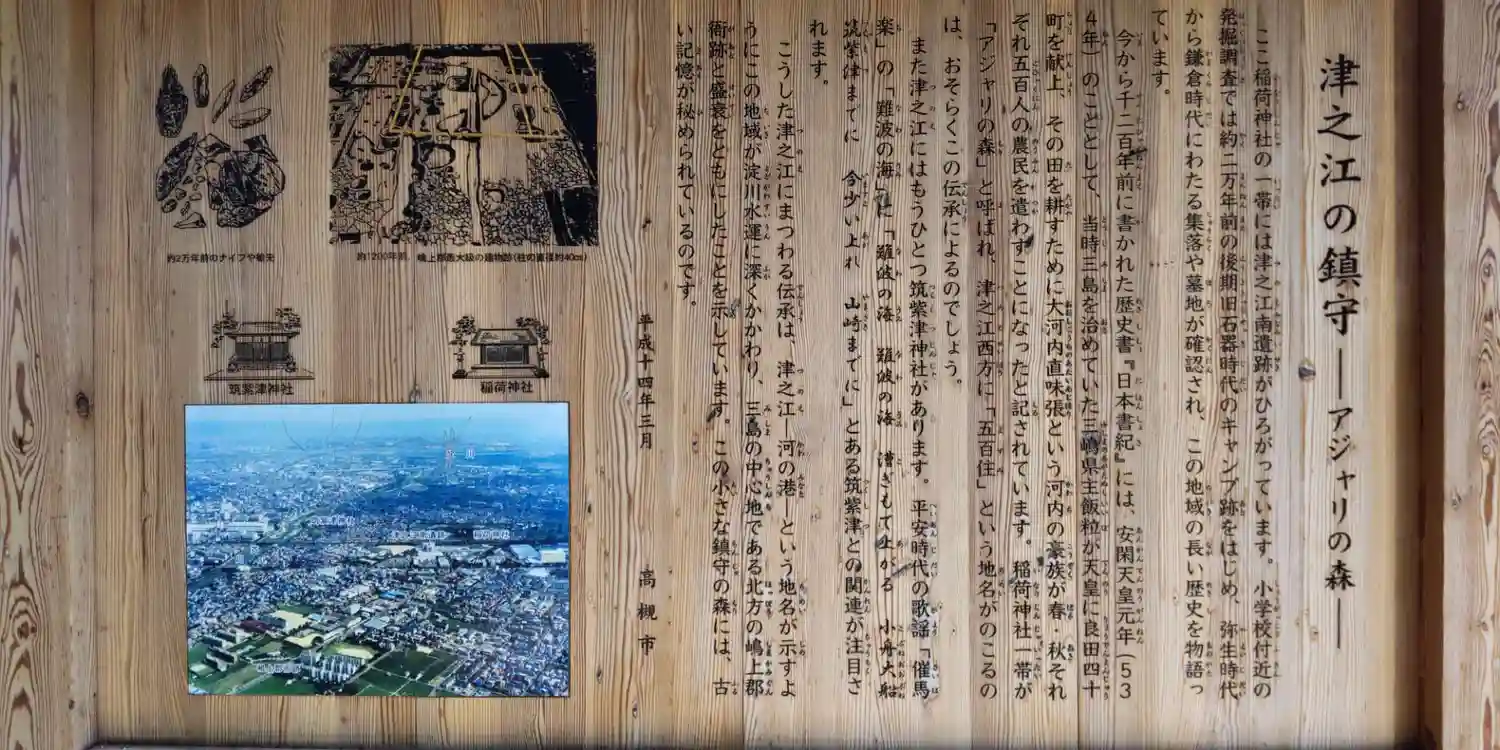 津之江の鎮守――アジャリの森――
ここ稲荷神社の一帯には津之江南遺跡がひろがっています。小学校付近の
発掘調査では約二万年前の後期旧石器時代のキャンプ跡をはじめ、弥生時代
から鎌倉時代にわたる集落や墓地が確認され、この地域の長い歴史を物語っ
ています。
今から千二百年前に書かれた歴史書『日本書紀』には、安閑天皇元年(53
4年)のこととして、当時三島を治めていた三嶋県主飯粒が天皇に良田四十
町を献上、その田を耕すために大河内直味張という河内の豪族が春・秋それ
ぞれ五百人の農民を遣わすことになったと記されています。稲荷神社一帯が
「アジャリの森」と呼ばれ、津之江西方に「五百住」という地名がのこるの
は、おそらくこの伝承によるのでしょう。
また津之江にはもうひとつ筑紫津神社があります。平安時代の歌謡「催馬
楽」の「難波の海」に「難波の海 難波の海 漕ぎもて上がる 小舟大船
筑紫津までに 今少い上れ 山崎までに」とある筑紫津との関連が注目さ
れます。
こうした津之江にまつわる伝承は、津之江―河の港―という地名が示すよ
うにこの地域が淀川水運に深くかかわり、三島の中心地である北方の嶋上郡
衙跡と盛衰をともにしたことを示しています。この小さな鎮守の森には、古
い記憶が秘められているのです。
平成十四年三月 高槻市
約1200年前 嶋上郡衙大級の建物跡(柱の直径約40cm)
約2万年前のナイフや槍先
稲荷神社
筑紫津神社